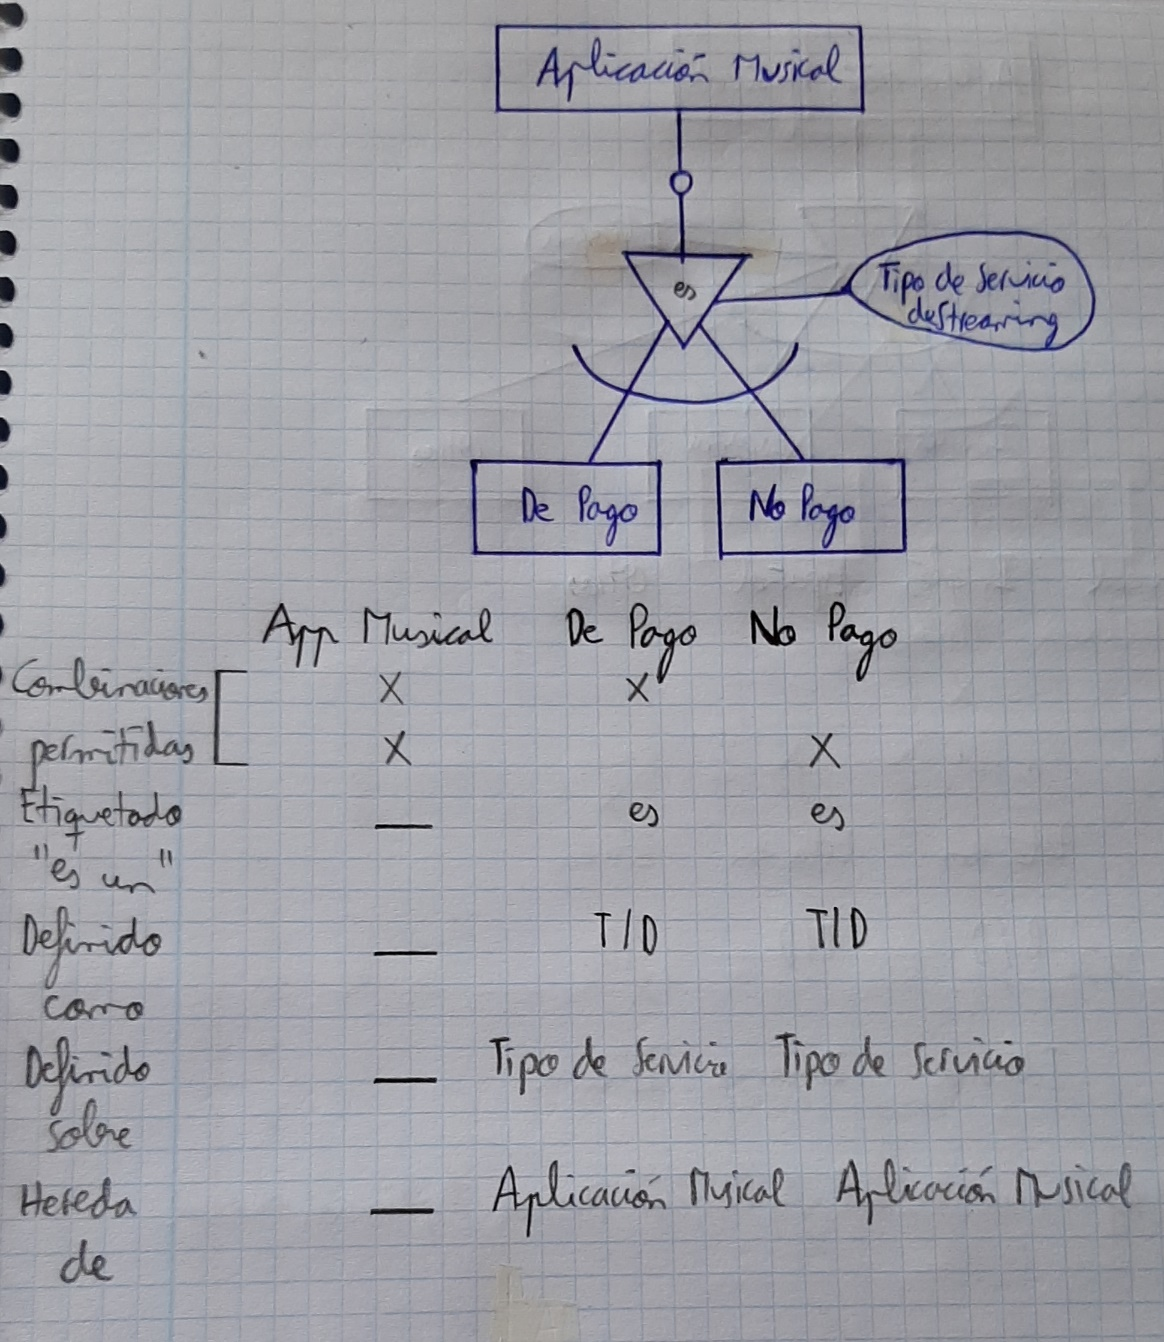 Aplicación Musical
es
Tipo de Servicio
de Streaming
De Pago
No Pago
App Musical De Pago No Pago
Combinaciones X X
permitidas X X
Etiquetado — es es
"es un"
Definido — T/D T/D
como
Definido — Tipo de Servicio Tipo de Servicio
sobre
Hereda — Aplicación Musical Aplicación Musical
de